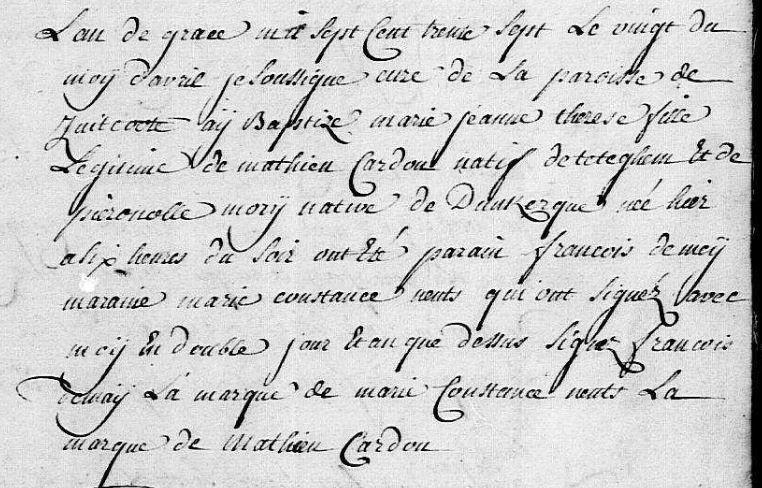 L'an de grace mil sept Cent trente sept Le vingt du
moy d'avril je soussigne cure de La paroisse de
Zuitcote aÿ Baptize marie jeanne therese fille
Legitime de mathieu Cardon natif de teteghem Et de
pieronelle morÿ native de Dunkerque née hier
a six heures du soir ont Eté parain françois de meÿ
maraine marie constance nents qui ont signez avec
moÿ En double jour Et an que dessus signez françois
demaÿ La marque de marie Constance nents La
marque de Mathieu Cardon